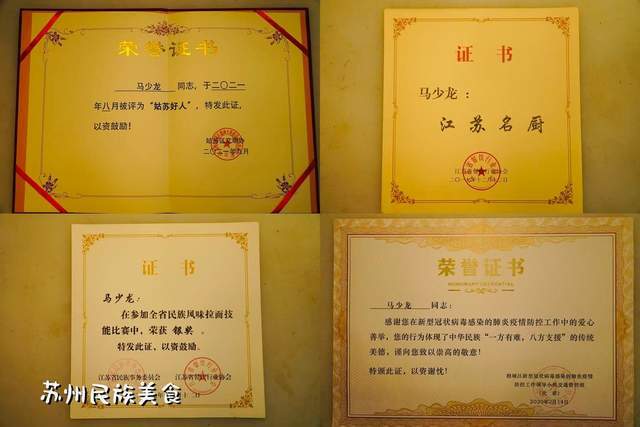 荣誉证书
马少龙 同志，于二〇二一
年八月被评为“姑苏好人”，特发此证，
以资鼓励！
证书
马少龙：
江苏名厨
证书
马少龙：
在参加全省民族风味拉面技
能比赛中，荣获 银奖 。
特发此证，以资鼓励。
江苏省民族事务委员会
荣誉证书
HONORARY CREDENTIAL
马少龙 同志：
感谢您在新型冠状病毒感染的肺炎疫情防控工作中的爱心
善举，您的行为体现了中华民族“一方有难，八方支援”的传统
美德，谨向您致以崇高的敬意！
特颁此证，以资谢忱！
2020年2月14日
苏州民族美食